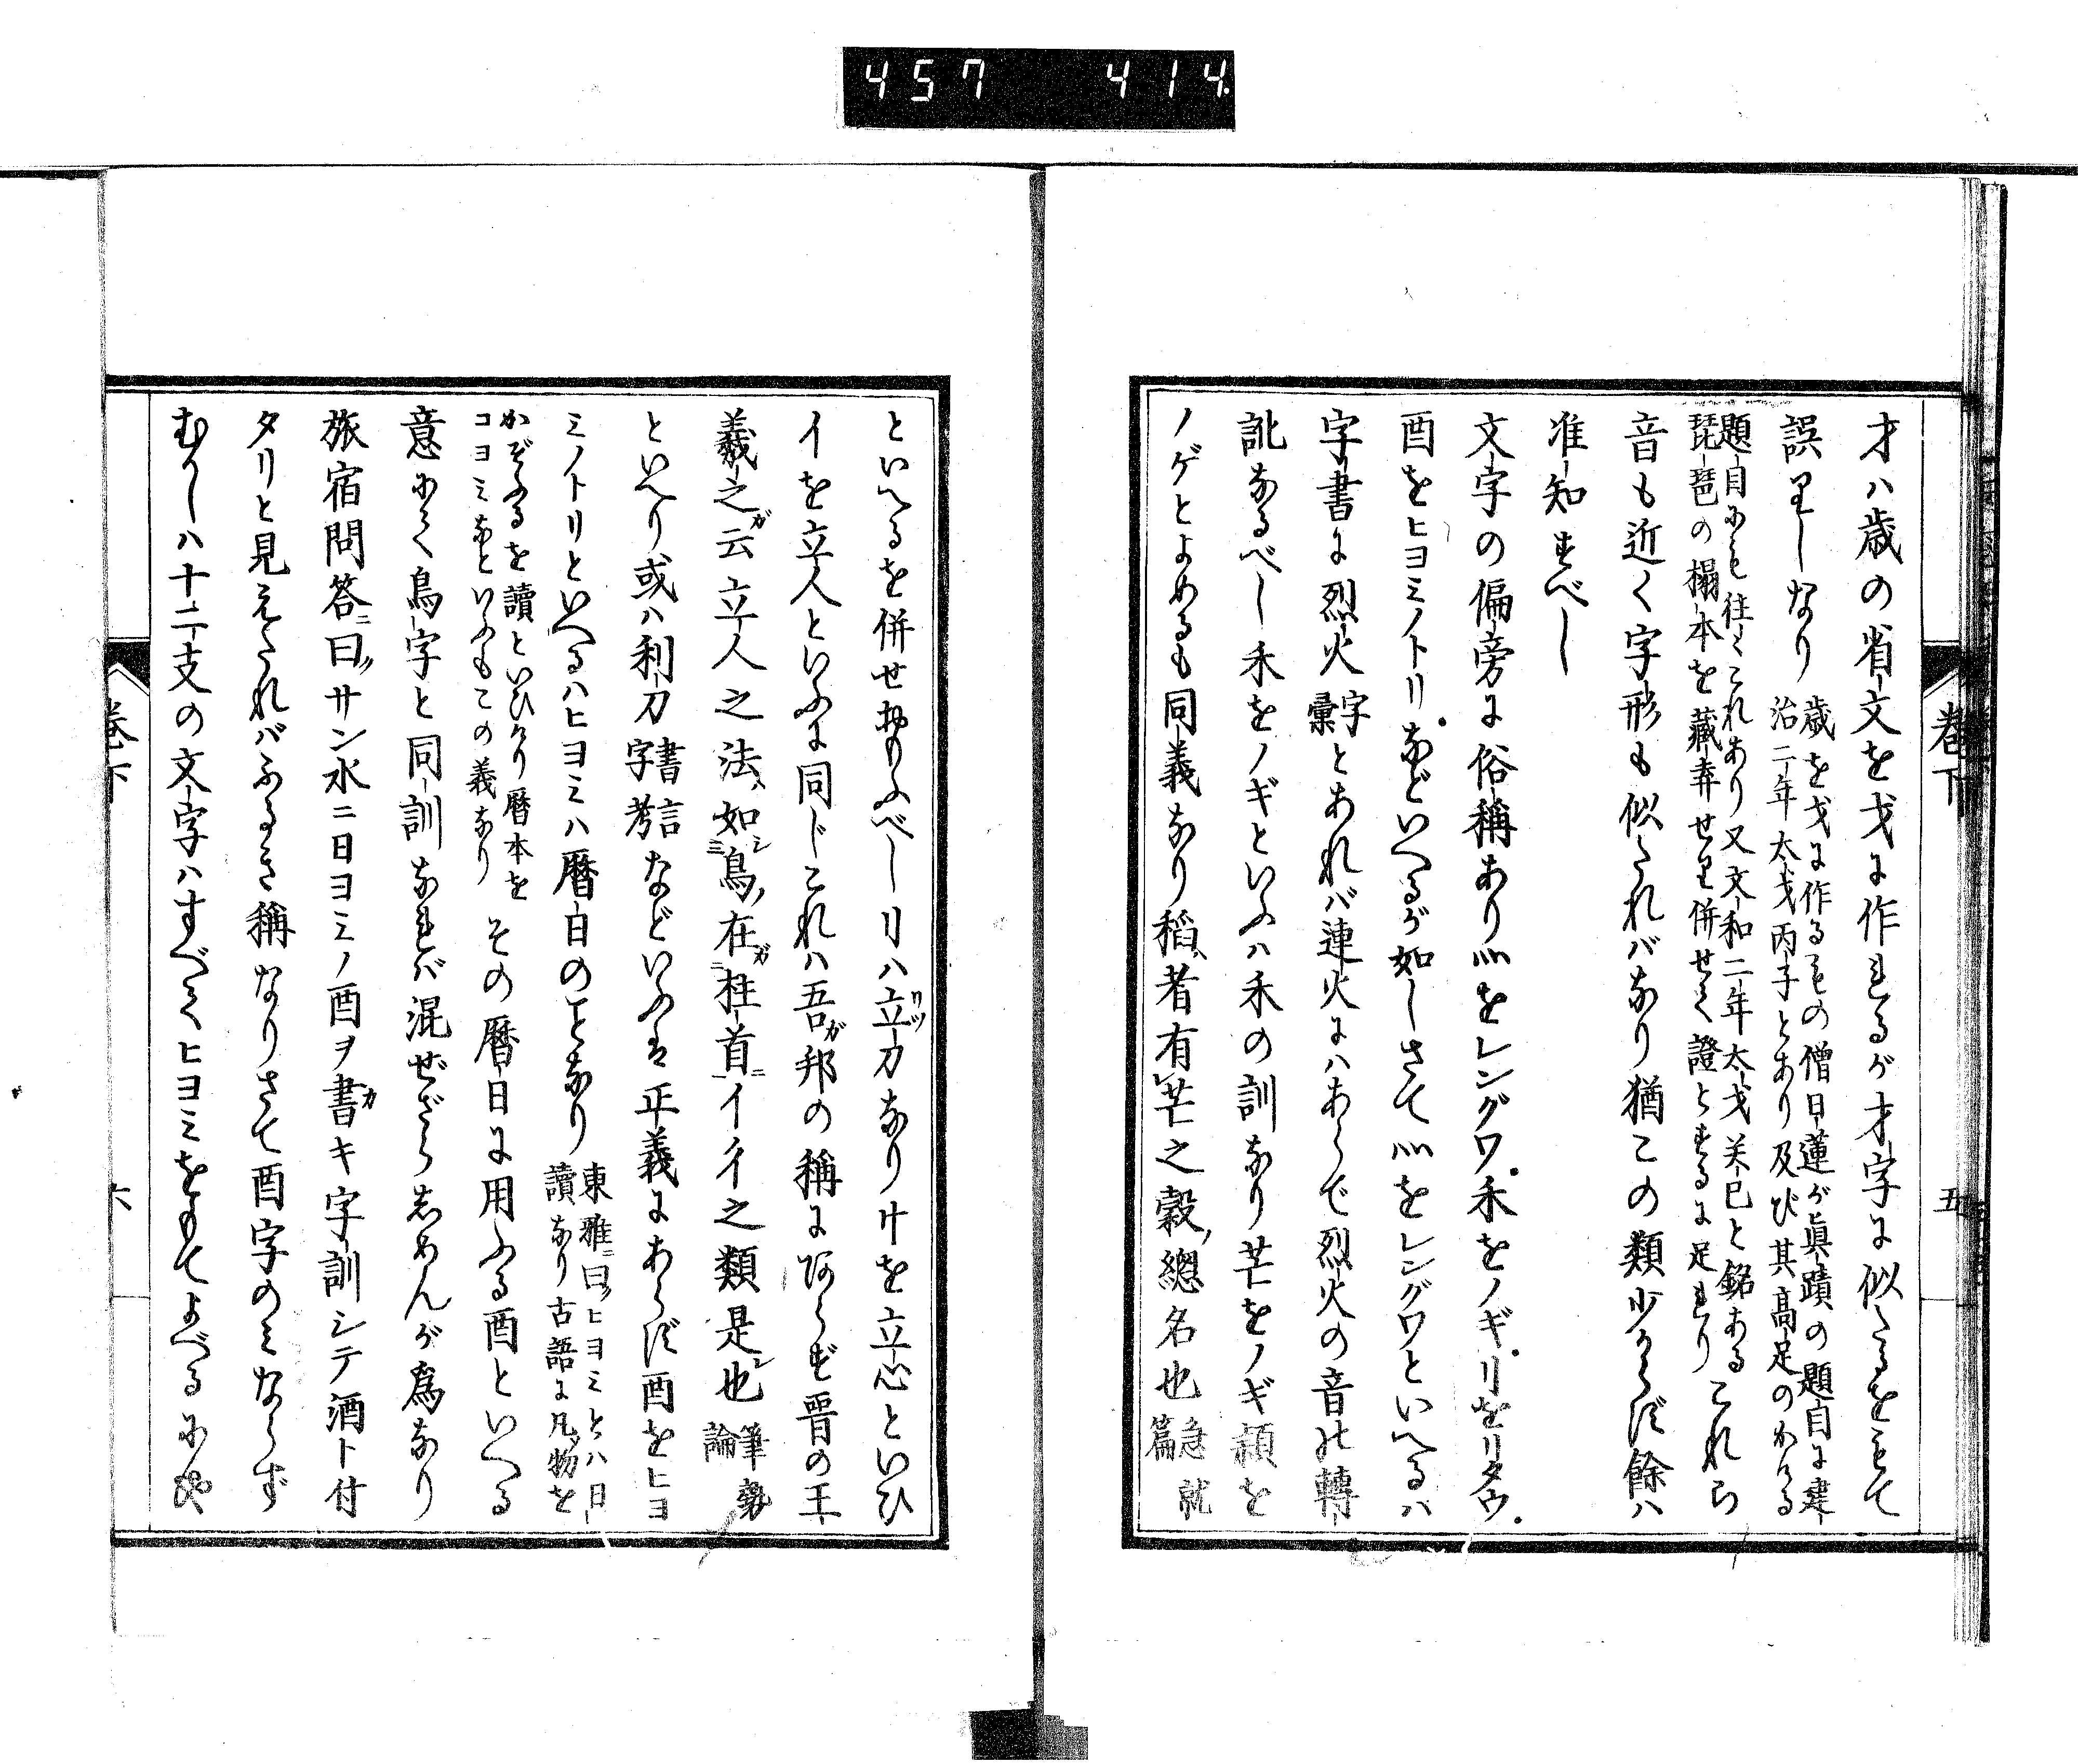 457 414.
巻下 五
才ハ歳の省文を戈に作れるが才字に似たるをもて
誤りしなり 歳を戈に作るもの僧日蓮が眞蹟の題目に建
治二年太戈丙子とあり及び其高足のかける
題目にも往々これあり又文和二年太戈关巳と銘ある
琵琶の搨本を藏弆せり併せて證とするに足れり これら
音も近く字形も似たれバなり猶この類少からず餘ハ
准知すべし
文字の偏旁に俗稱あり灬をレングワ禾をノギ刂をリタウ
酉をヒヨミノトリなどいへるが如しさて灬をレングワといへるハ
字書に烈火 字
彙 とあれバ連火にハあらで烈火の音の轉
訛なるべし禾をノギといふハ禾の訓なり芒をノギ穎を
ノゲとよめるも同義なり稻ハ者有芒之穀ノ總名也 急就
篇
といへるを併せ攷ふべし刂ハ立刀なり忄を立心といひ
亻を立人といふに同じこれハ吾ガ邦の稱にあらず晉の王
羲之ガ云立人之法ハ如シ鳥ノ在ガ柱首ニ亻彳之類是也 筆勢
論
といへり或ハ利刀 書言
字考 などいふは正義にあらず酉をヒヨ
ミノトリといへるハヒヨミハ暦日のことなり 東雅ニ曰ヒヨミとハ日
讀なり古語に凡ソ物を
かぞふるを讀といひけり暦本を
コヨミなどいふもこの義なり その暦日に用ふる酉といへる
意にて鳥字と同訓なれバ混ぜざらしめんが爲なり
旅宿問答ニ曰サン水ニ日ヨミノ酉ヲ書キ字訓シテ酒ト付
タリと見えたれバふるき稱なりさて酉字のミならず
むかしハ十二支の文字ハすべてヒヨミをもてよべるにや
巻下 六